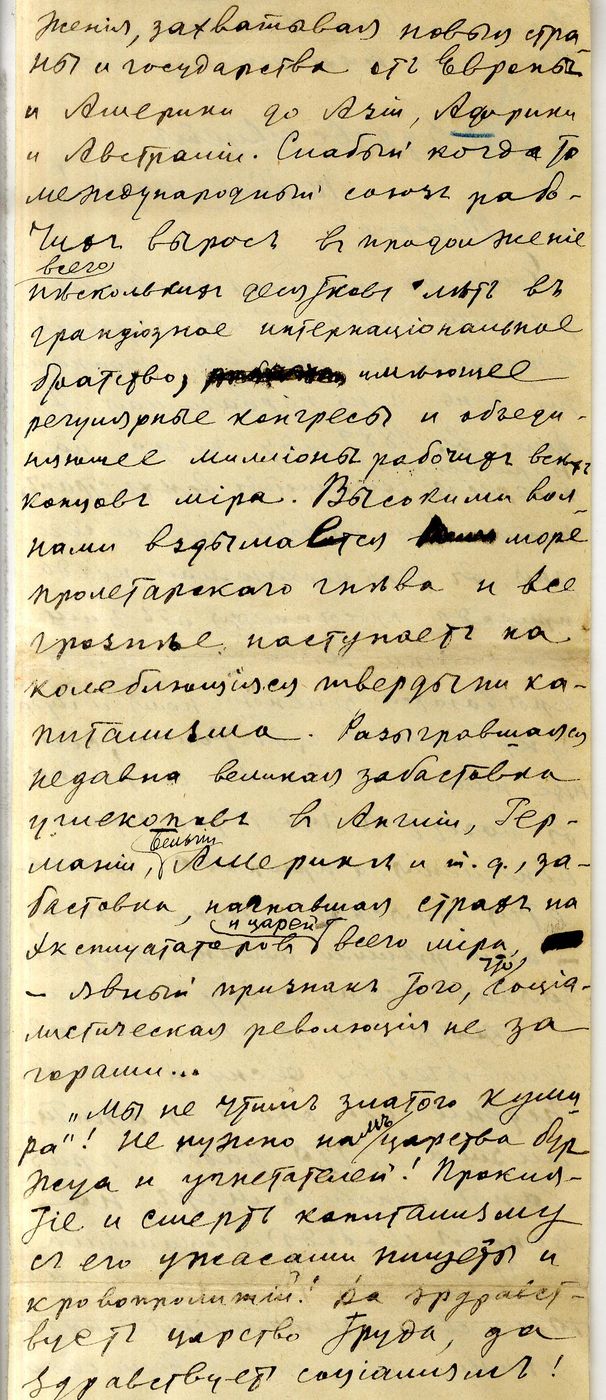 женія, захватывая новыя стра-
ны и государства отъ Европы
и Америки до Азіи, Африки
и Австраліи. Слабый когда то
международный союзъ рабо-
чихъ выросъ въ продолженіе
всего
нѣсколькихъ десятковъ лѣтъ въ
грандіозное интернаціональное
братство, имѣющее
регулярные конгресы и объеди-
няющее милліоны рабочихъ всѣхъ
концовъ міра. Высокими вол-
нами вздымается море
пролетарскаго гнѣва и все
грознѣе наступаетъ на
колеблющіяся твердыни ка-
питализма. Разыгравшаяся
недавно великая забастовка
углекоповъ въ Англіи, Гер-
Бельгіи
маніи, Америкѣ и т. д., за-
бастовка, нагнавшая страхъ на
и царей
эксплуататоровъ всего міра,
что
— явный признакъ того, соціа-
листическая революція не за
горами...
„Мы не чтимъ златого куми-
мъ
ра“! Не нужно намъ царства бур
жуа и угнетателей! Прокля-
тіе и смерть капитализму
съ его ужасами нищеты и
кровопролитій! Да здравст-
вуетъ царство труда, да
здравствуетъ соціализмъ!